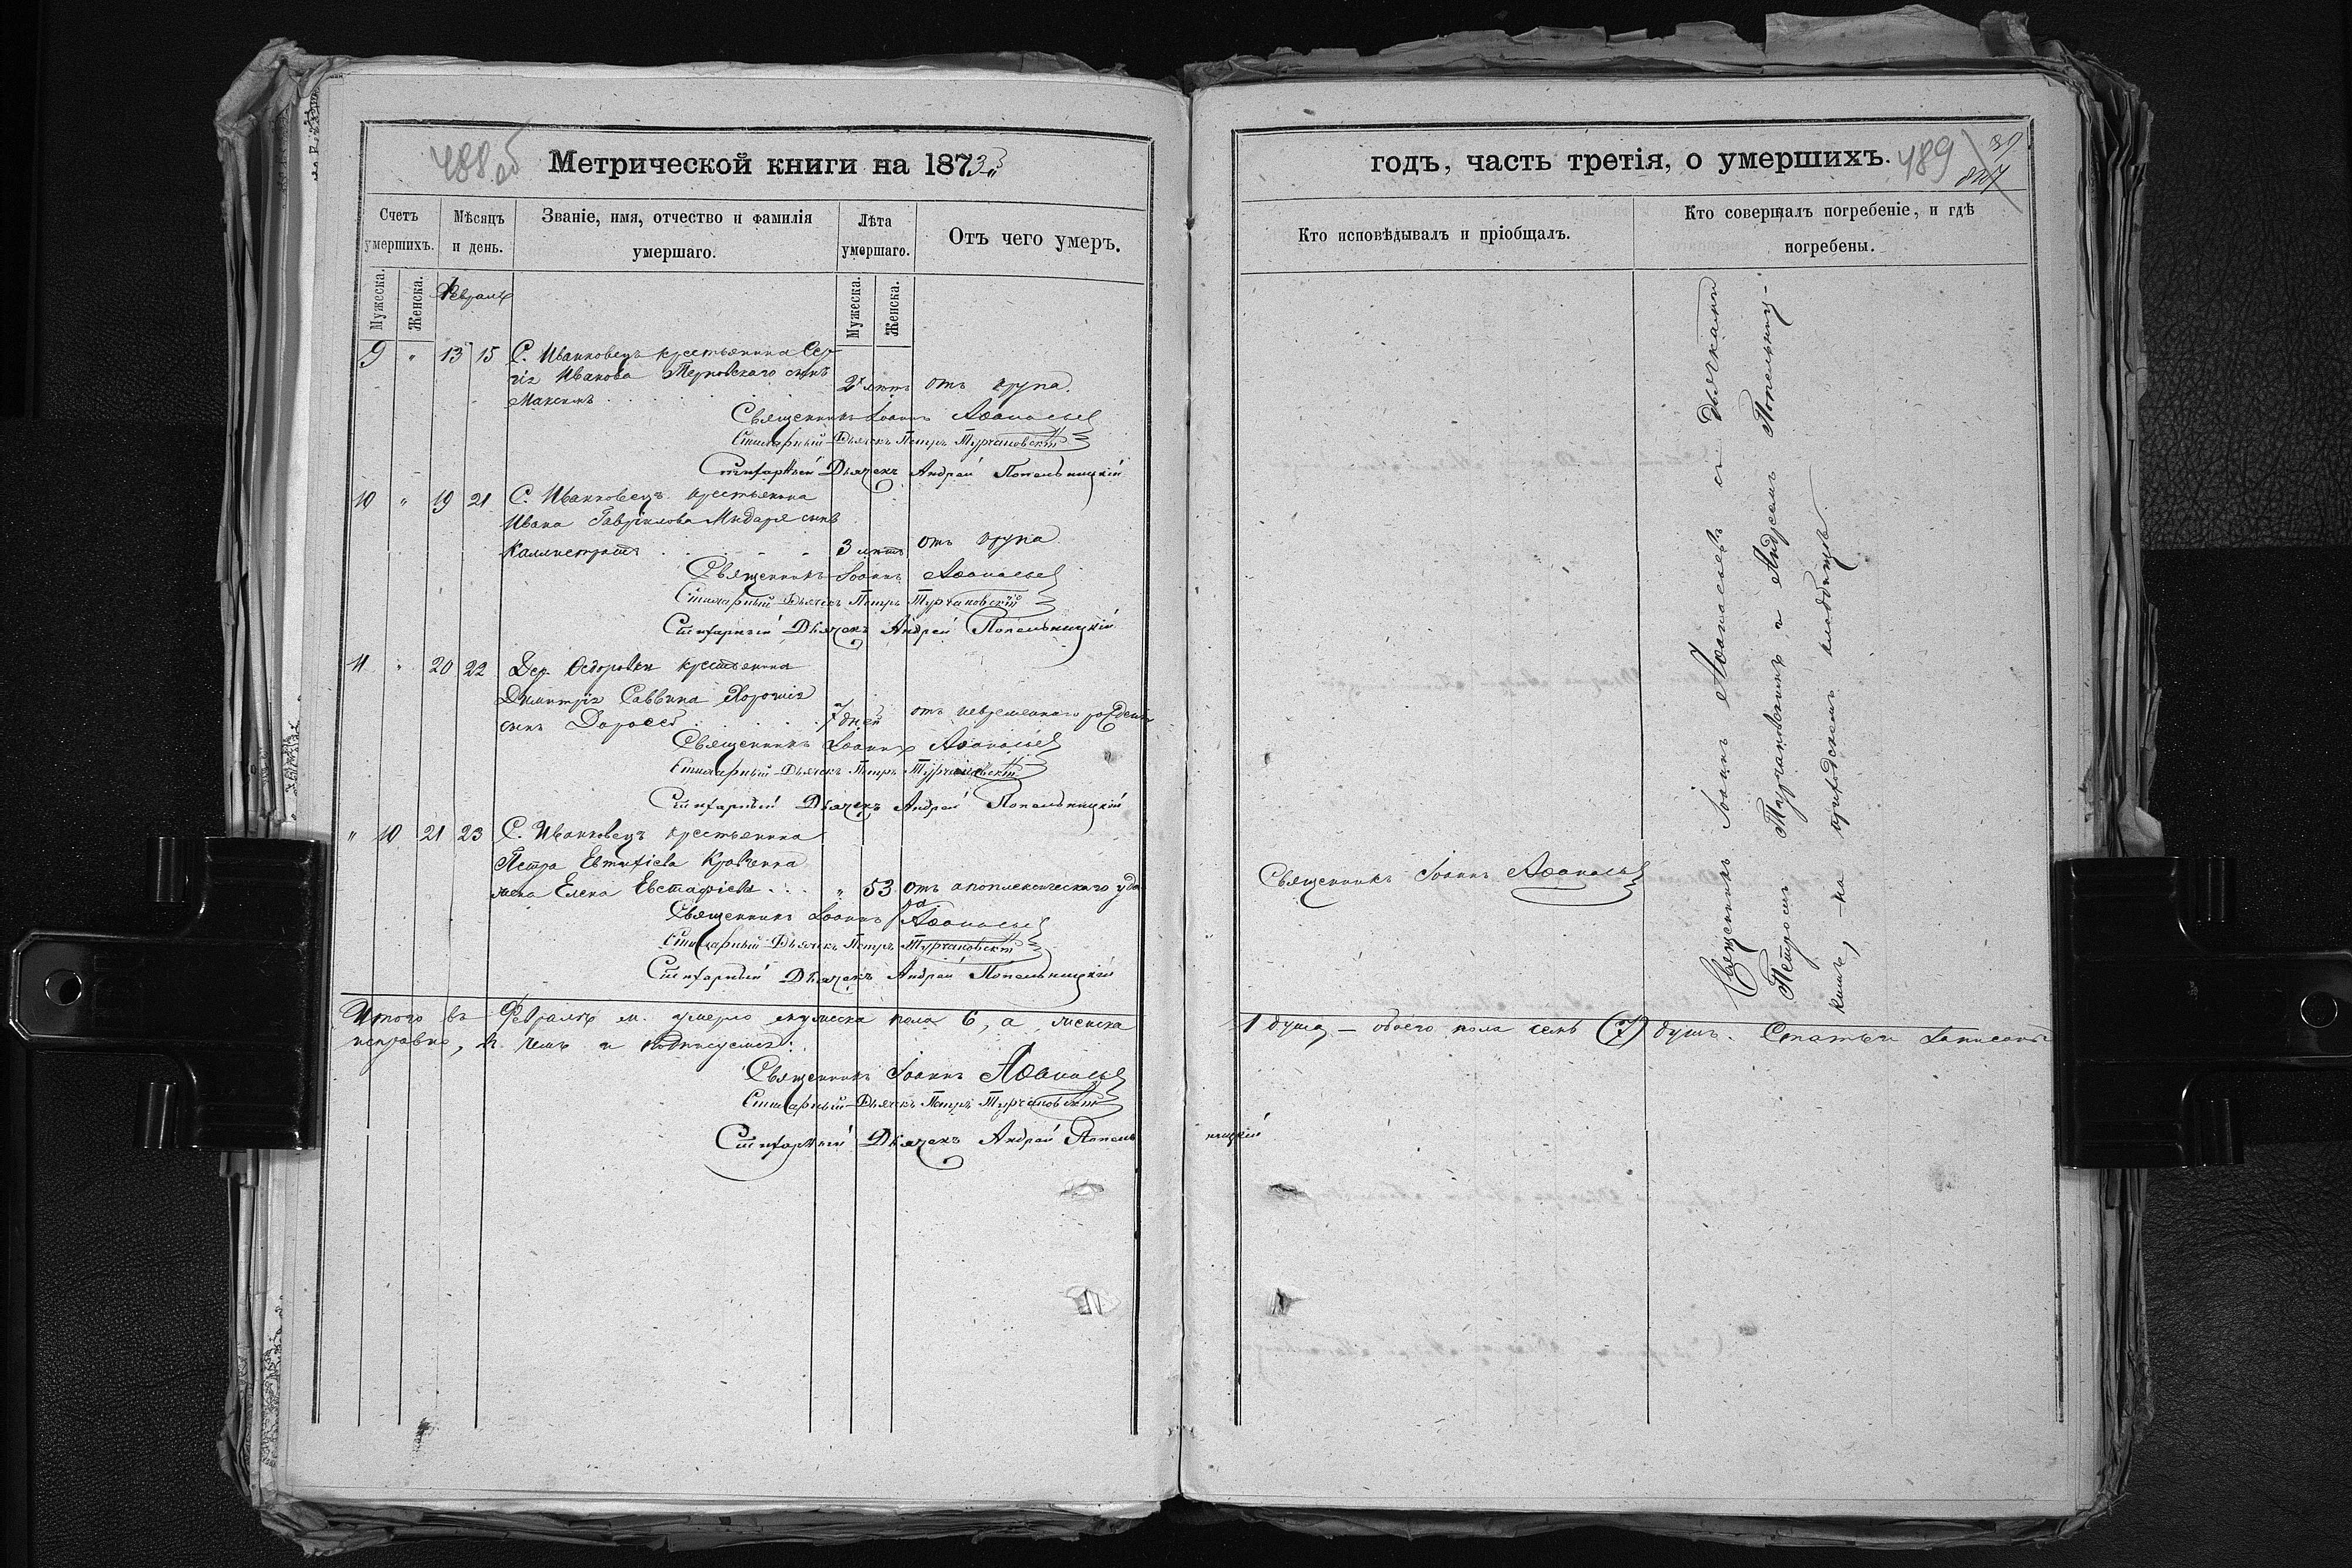 488 об
Метрической книги на 1873
Счетъ умершихъ.
Мѣсяцъ и день.
Званіе, имя, отчество и фамилія умершаго.
Лѣта умершаго.
Отъ чего умеръ.
Мужеска.
Женска.
Февраль
Мужеска.
Женска.
9 " 13 15 С. Иванковецъ крестьянина Сер-
гія Иванова сынъ
Максимъ 2х лѣтъ отъ крупа.
Священникъ Іоаннъ Аѳанасьевъ
Стихарный Дьячекъ Петръ Турчановскій
Стихарный Дьячекъ Андрей Попельницкій
10 " 19 21 С. Иванковецъ крестьянина
Ивана Гаврилова сынъ
Каллистратъ 3 лѣтъ отъ крупа
Священникъ Іоаннъ Аѳанасьевъ
Стихарный Дьячекъ Петръ Турчановскій
Стихарный Дьячекъ Андрей Попельницкій
11 " 20 22 Дер. Ѳедоровки крестьянина
Димитрія Саввина
сынъ Дороѳей 7 дней отъ невременнаго рожденія
Священникъ Іоаннъ Аѳанасьевъ
Стихарный Дьячекъ Петръ Турчановскій
Стихарный Дьячекъ Андрей Попельницкій
" 10 21 23 С. Иванковецъ крестьянина
Петра Евтихіева Кравченка
жена Елена Евстафіева " 53 отъ апоплексическаго уда-
ра
Священникъ Іоаннъ Аѳанасьевъ
Стихарный Дьячекъ Петръ Турчановскій
Стихарный Дьячекъ Андрей Попельницкій
Итого въ Февралѣ м. умерло мужеска пола 6, а женска
исправно, въ чемъ и подписуемся:
Священникъ Іоаннъ Аѳанасьевъ
Стихарный Дьячекъ Петръ Турчановскій
Стихарный Дьячекъ Андрей Попель
годъ, часть третія, о умершихъ.
489
Кто исповѣдывалъ и пріобщалъ.
Кто совершалъ погребеніе, и гдѣ погребены.
Священникъ Іоаннъ Аѳанасьевъ
Священникъ Іоаннъ Аѳанасьевъ съ Дьячками
Петромъ Турчановскимъ и Андреемъ Попельниц-
кимъ, на приходскомъ кладбищѣ.
1 душа – обоего пола семь (7) душъ. Статьи записаны
ницкій